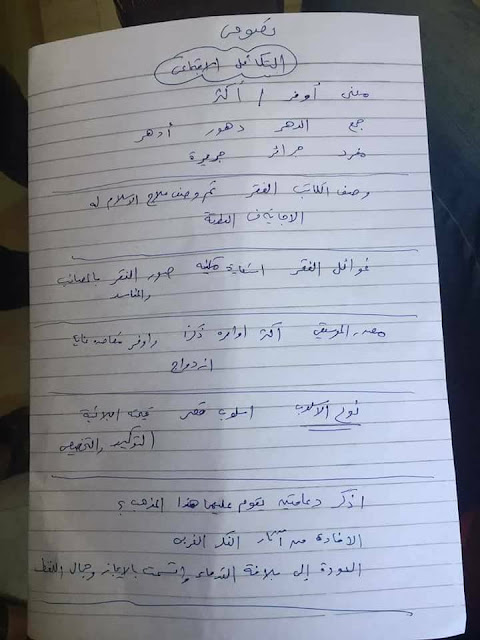 نصوص
التكافل الاجتماعي
معنى أوفر / أكثر
جمع الدهر دهور أدهر
مفرد جرائر جريرة
وصف الكاتب الفقر ثم وصف علاج الاسلام له
الاجابة فى القطعة
غوائل الفقر استعارة مكنية صور الفقر بالمصائب
والمفاسد
مصدر الموسيقى أكثر اواره ذكرا وأوفر
ازدواج
نوع الاسلوب اسلوب قصر قيمته البلاغية
التوكيد والتخصيص
اذكر دعامتين يقوم عليهما هذا المذهب ؟
الافادة من آثار الفكر الغربى
العودة إلى بلاغة القدماء واتسمت بالايجاز وجمال اللفظ